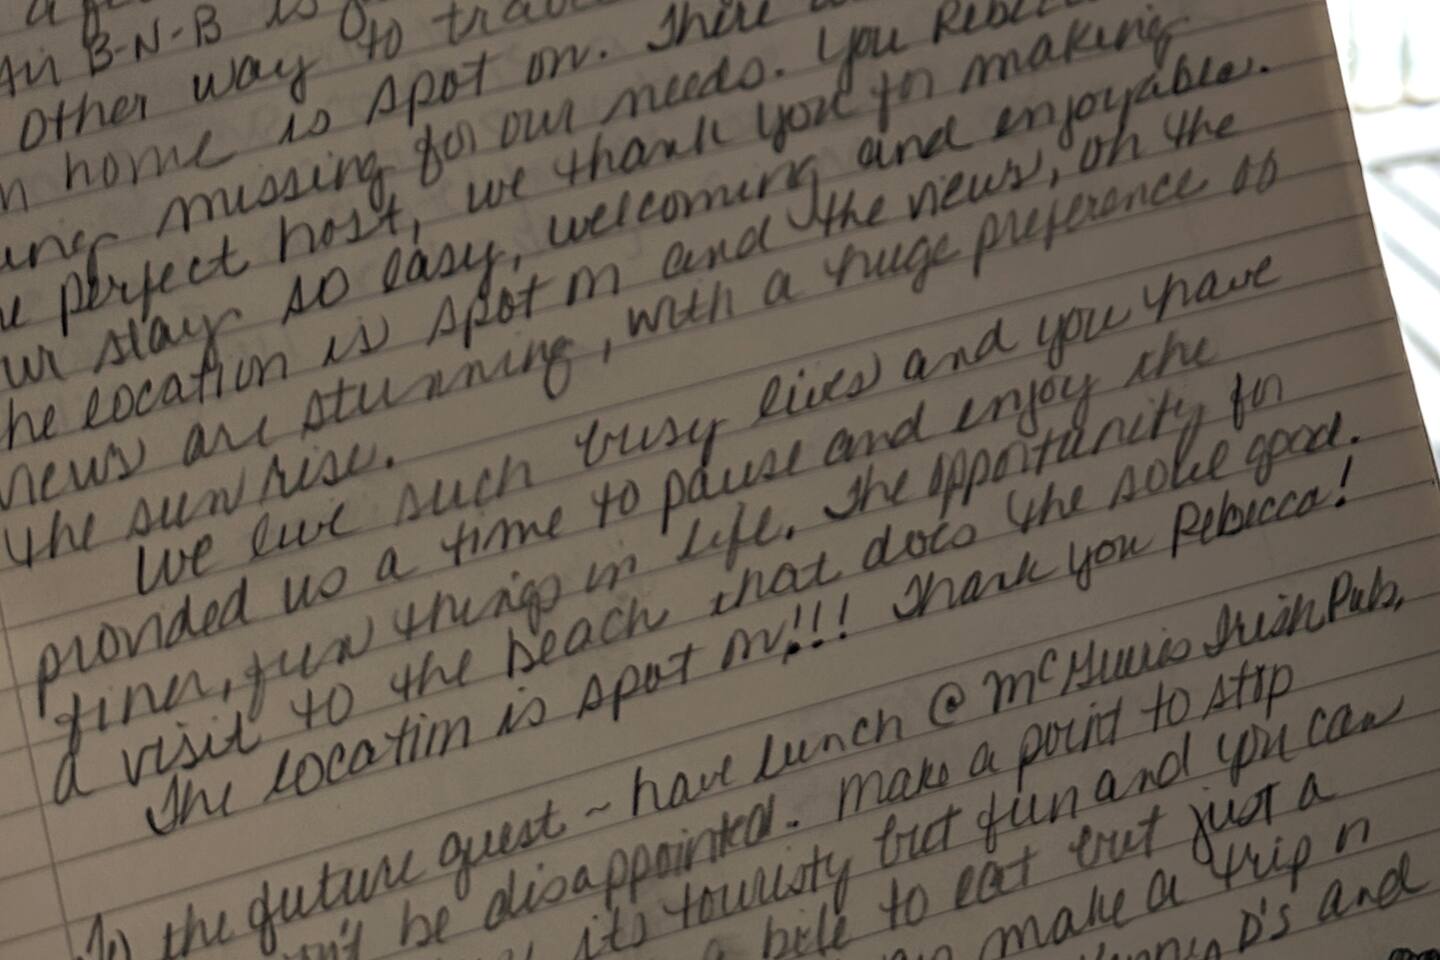 Air B-N-B is
other way to
home is spot on. There
missing for our needs. You Rebecca
perfect host, we thank you for making
our stay so easy, welcoming and enjoyable.
The location is spot on and the views, oh the
views are stunning, with a huge preference of
the sunrise.
We live such busy lives and you have
provided us a time to pause and enjoy the
finer, fun things in life. The opportunity for
a visit to the beach that does the soul good.
The location is spot on!!! Thank you Rebecca!
To the future guest ~ have lunch @ McGuires Irish Pub,
be disappointed. Make a point to stop
its touristy but fun and you can
a bite to eat but just a
make a trip
D's and